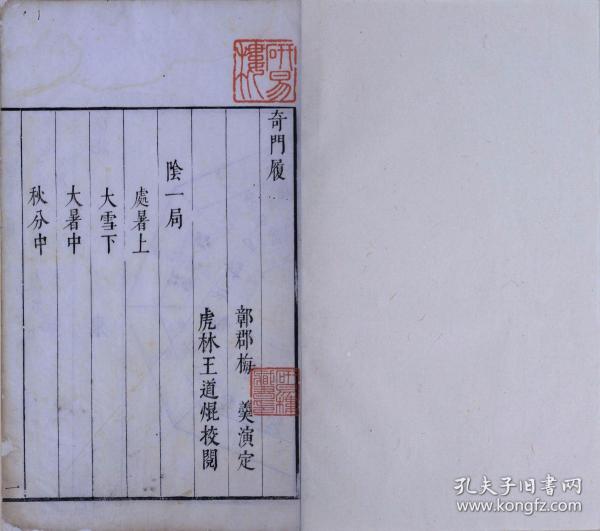 研易樓
奇門履
鄣郡梅 羹演定
虎林王道焜校閱
陰一局
處暑上
大雪下
大暑中
秋分中
一
孔夫子旧书网
www.kongfz.com